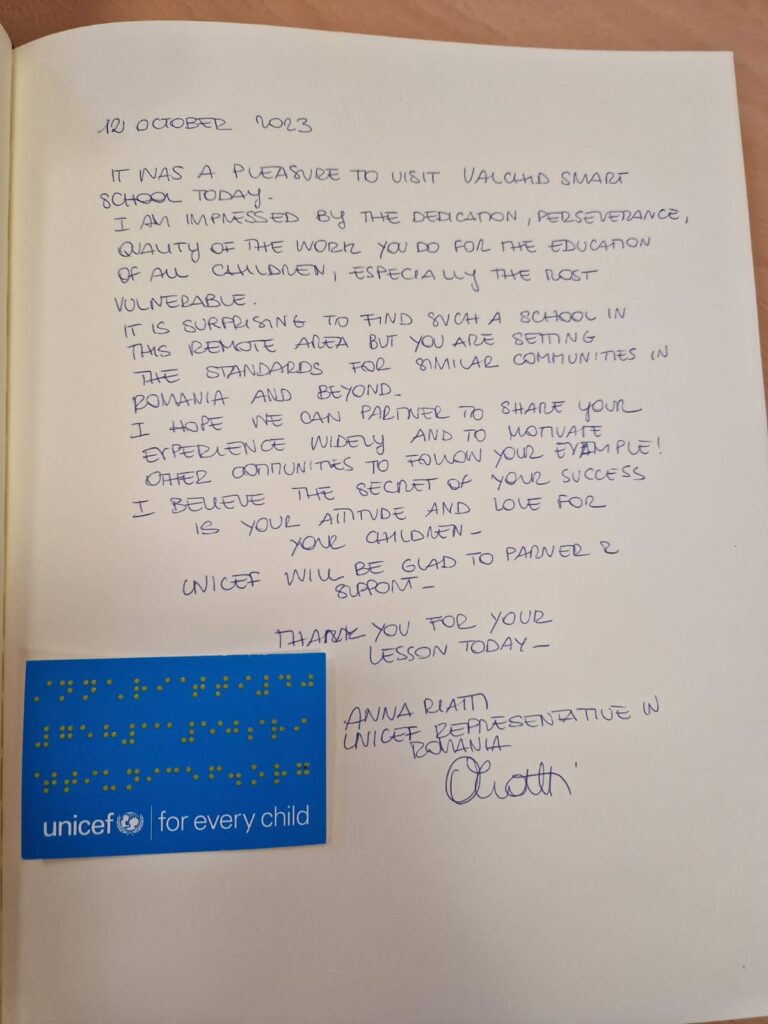 12 OCTOBER 2023
IT WAS A PLEASURE TO VISIT VALCHID SMART
SCHOOL TODAY.
I AM IMPRESSED BY THE DEDICATION, PERSEVERANCE,
QUALITY OF THE WORK YOU DO FOR THE EDUCATION
OF ALL CHILDREN, ESPECIALLY THE MOST
VULNERABLE.
IT IS SURPRISING TO FIND SUCH A SCHOOL IN
THIS REMOTE AREA BUT YOU ARE SETTING
THE STANDARDS FOR SIMILAR COMMUNITIES IN
ROMANIA AND BEYOND.
I HOPE WE CAN PARTNER TO SHARE YOUR
EXPERIENCE WIDELY AND TO MOTIVATE
OTHER COMMUNITIES TO FOLLOW YOUR EXAMPLE!
I BELIEVE THE SECRET OF YOUR SUCCESS
IS YOUR ATTITUDE AND LOVE FOR
YOUR CHILDREN -
UNICEF WILL BE GLAD TO PARNER &
SUPPORT -
THANK YOU FOR YOUR
LESSON TODAY -
ANNA RIATTI
UNICEF REPRESENTATIVE IN
ROMANIA
unicef | for every child